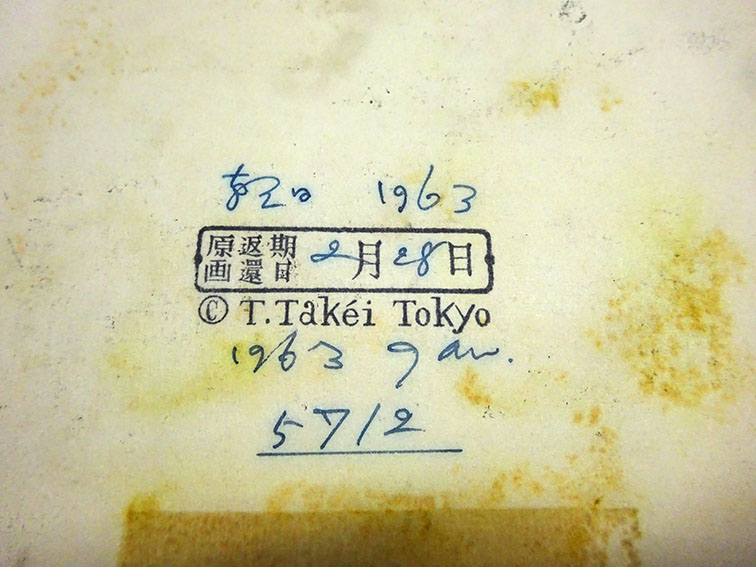 1963
原画返還期日 2月28日
© T.Takéi Tokyo
1963 Jan.
5712